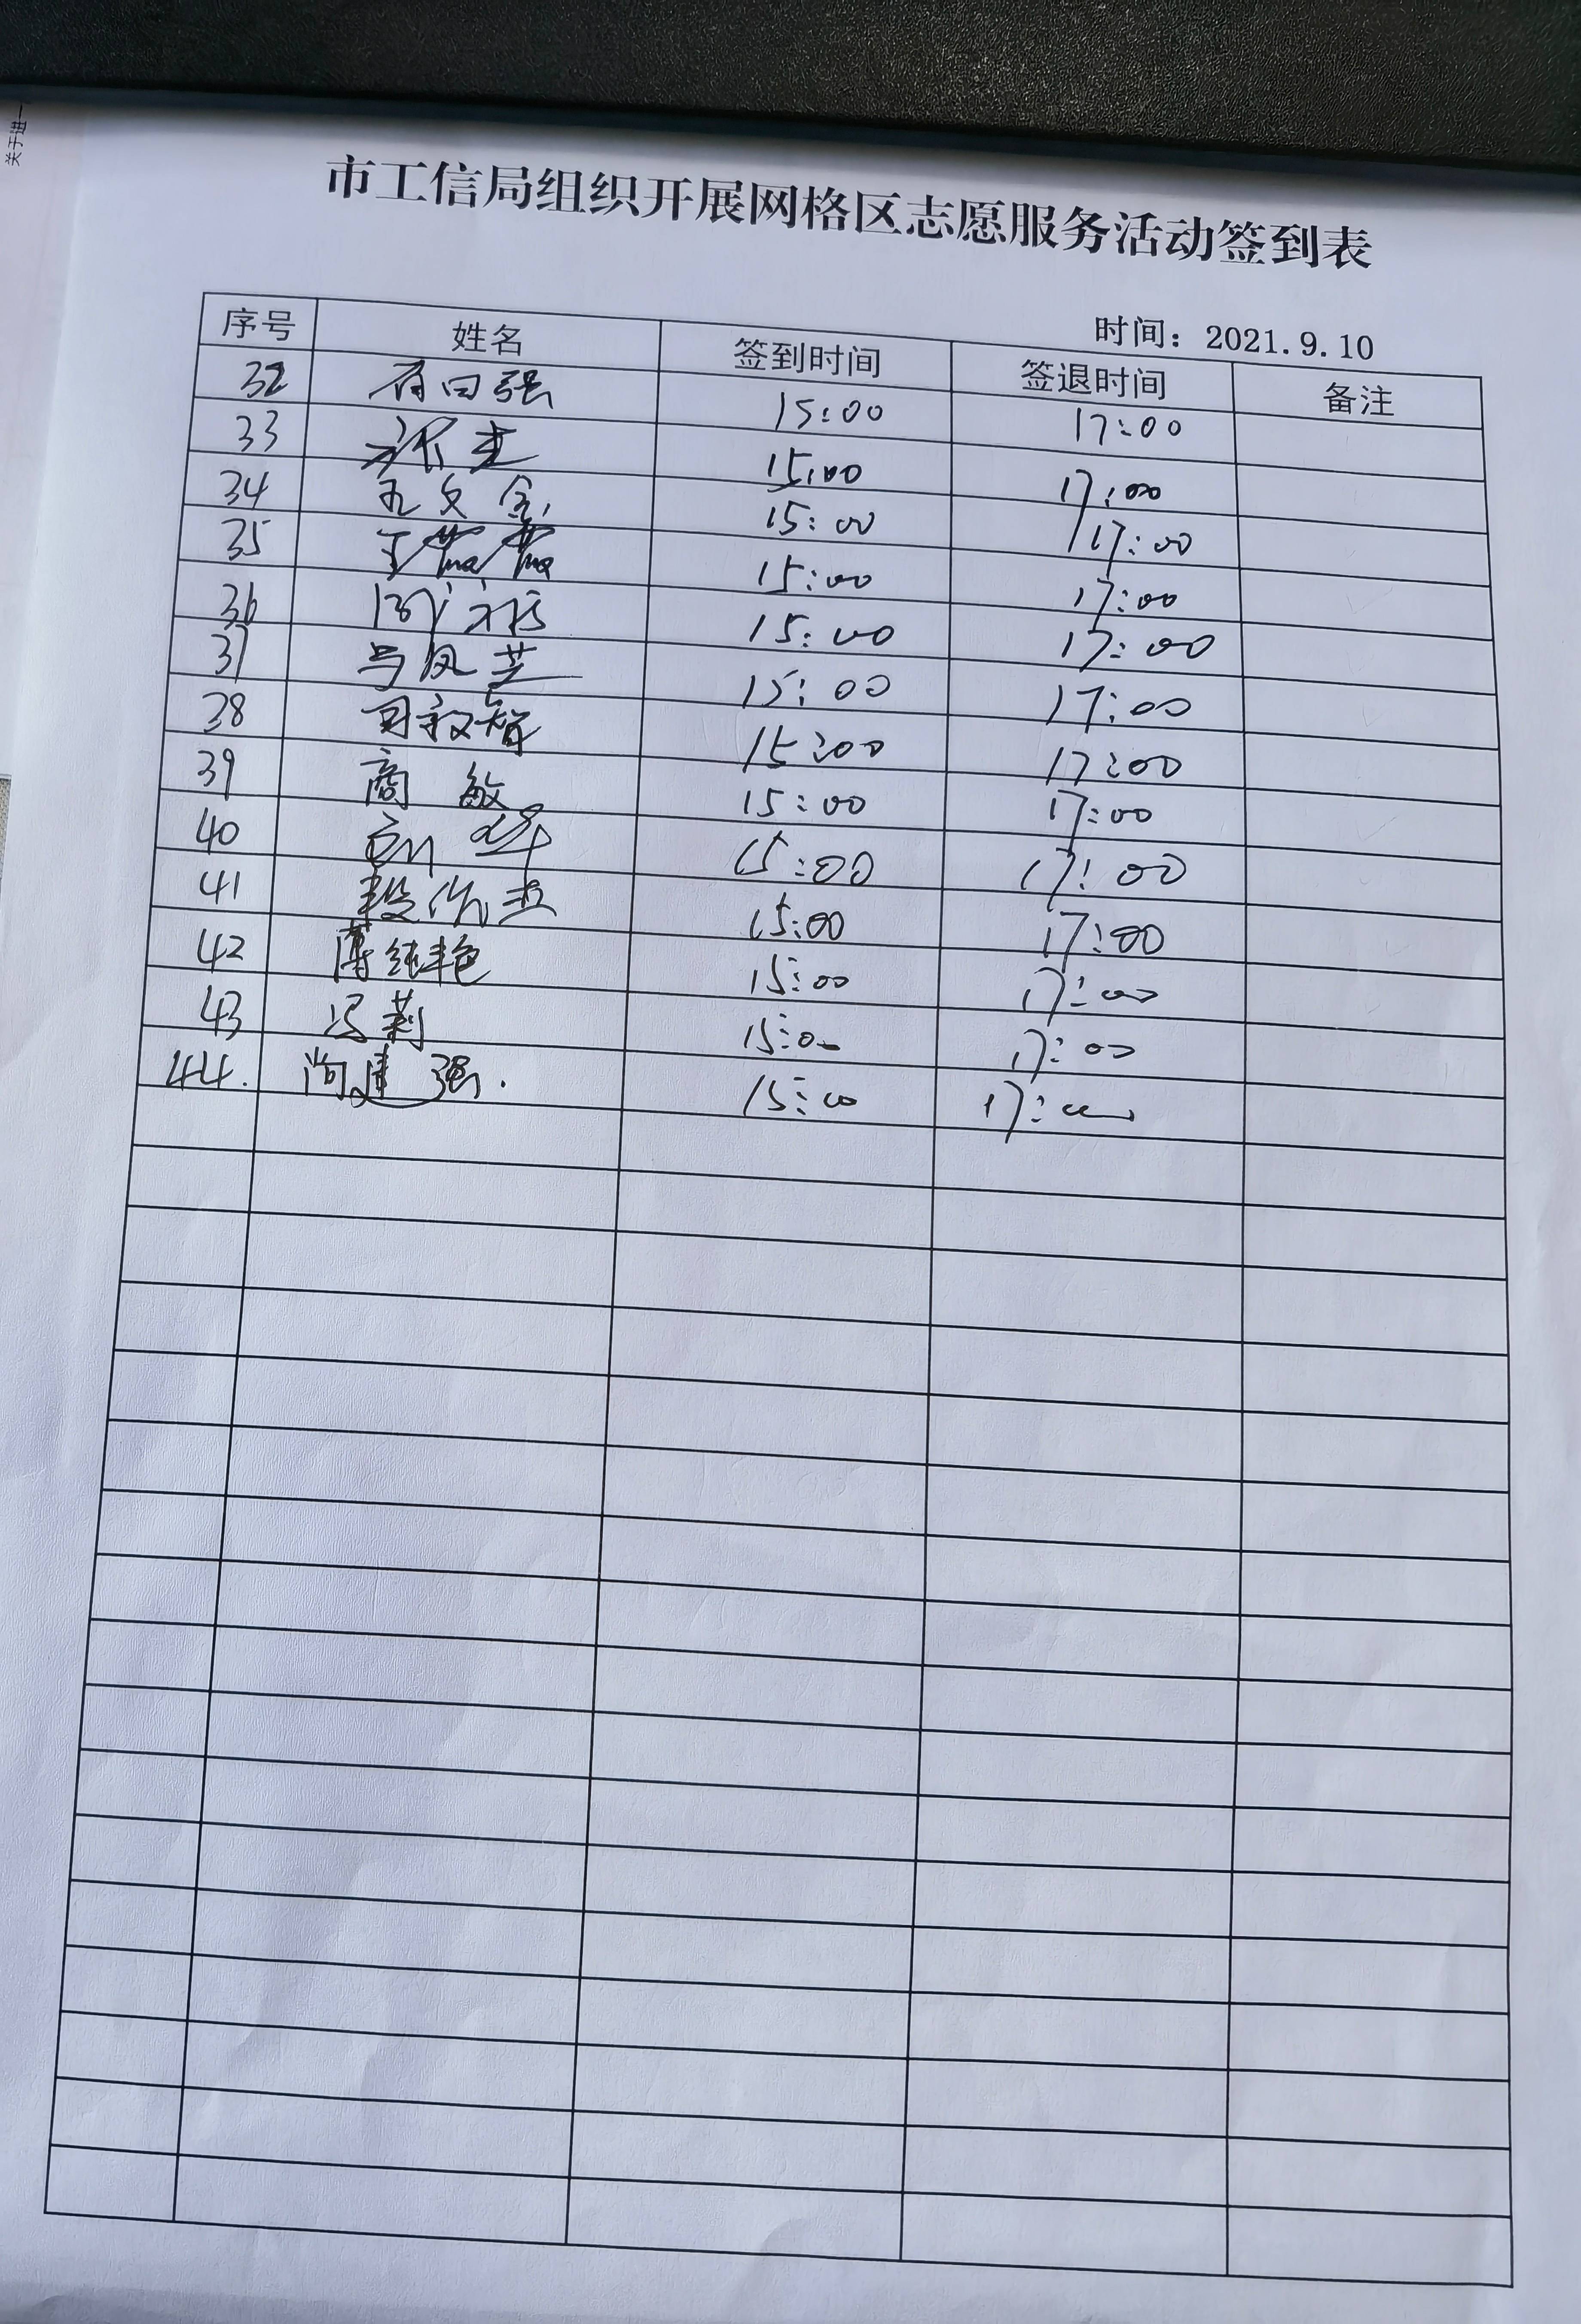 关于进一
市工信局组织开展网格区志愿服务活动签到表
时间：2021.9.10
序号 姓名 签到时间 签退时间 备注
32 强 15:00 17:00
33 15:00 17:00
34 文 15:00 17:00
35 王 15:00 17:00
36 15:00 17:00
37 凤芝 15:00 17:00
38 15:00 17:00
39 商敏 15:00 17:00
40 15:00 17:00
41 段 15:00 17:00
42 薄纯艳 15:00 17:00
43 冯莉 15:00 17:00
44. 尚建强. 15:00 17:00